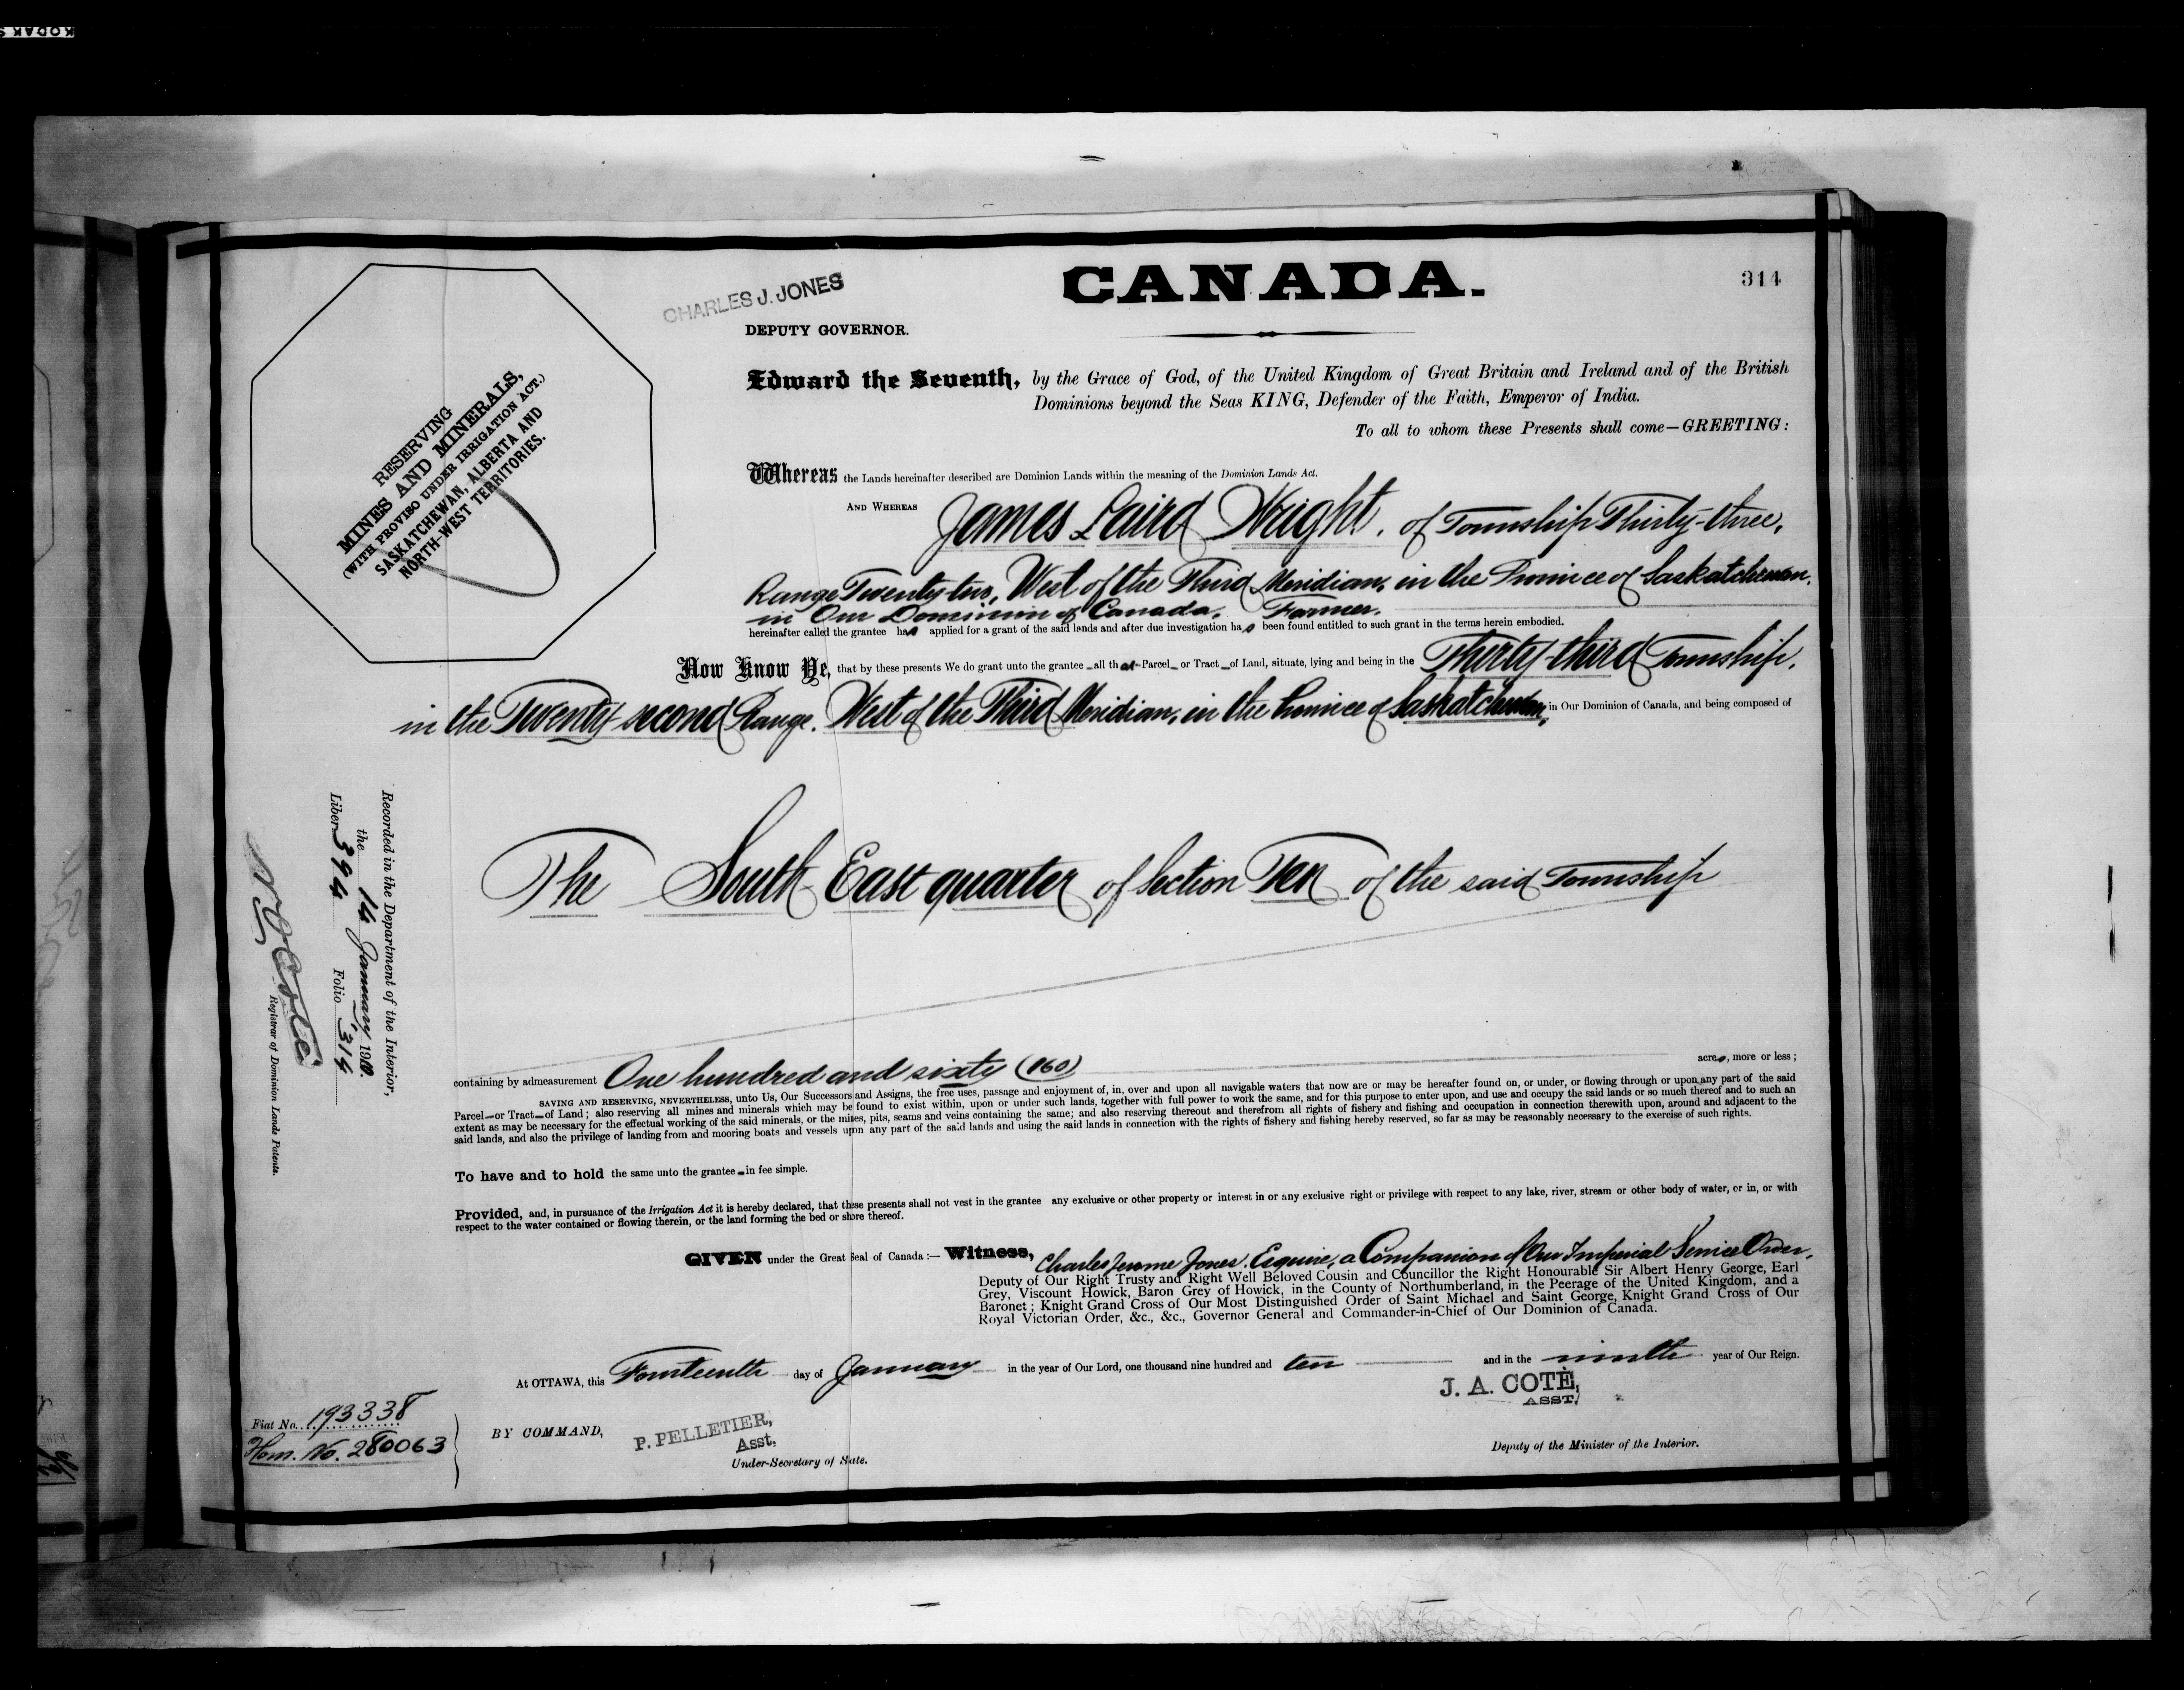 KODAK S
CANADA.
314
CHARLES J. JONES
DEPUTY GOVERNOR.
RESERVING
MINES AND MINERALS,
(WITH PROVISO UNDER IRRIGATION ACT.)
SASKATCHEWAN, ALBERTA AND
NORTH-WEST TERRITORIES.
Edward the Seventh, by the Grace of God, of the United Kingdom of Great Britain and Ireland and of the British
Dominions beyond the Seas KING, Defender of the Faith, Emperor of India.
To all to whom these Presents shall come—GREETING:
Whereas the Lands hereinafter described are Dominion Lands within the meaning of the Dominion Lands Act.
AND WHEREAS James Laird Wright, of Township Thirty-three,
Range Twenty-two, West of the Third Meridian, in the Province of Saskatchewan,
in Our Dominion of Canada, Farmer.
hereinafter called the grantee has applied for a grant of the said lands and after due investigation has been found entitled to such grant in the terms herein embodied.
Now Know Ye, that by these presents We do grant unto the grantee all that Parcel or Tract of Land, situate, lying and being in the Thirty-third Township,
in the Twenty-second Range, West of the Third Meridian, in the Province of Saskatchewan, in Our Dominion of Canada, and being composed of
The South-East quarter of Section Ten of the said Township
containing by admeasurement One hundred and sixty (160) acres, more or less;
SAVING AND RESERVING, NEVERTHELESS, unto Us, Our Successors and Assigns, the free uses, passage and enjoyment of, in, over and upon all navigable waters that now are or may be hereafter found on, or under, or flowing through or upon any part of the said
Parcel or Tract of Land; also reserving all mines and minerals which may be found to exist within, upon or under such lands, together with full power to work the same, and for this purpose to enter upon, and use and occupy the said lands or so much thereof and to such an
extent as may be necessary for the effectual working of the said minerals, or the mines, pits, seams and veins containing the same; and also reserving thereout and therefrom all rights of fishery and fishing and occupation in connection therewith upon, around and adjacent to the
said lands, and also the privilege of landing from and mooring boats and vessels upon any part of the said lands and using the said lands in connection with the rights of fishery and fishing hereby reserved, so far as may be reasonably necessary to the exercise of such rights.
To have and to hold the same unto the grantee in fee simple.
Provided, and, in pursuance of the Irrigation Act it is hereby declared, that these presents shall not vest in the grantee any exclusive or other property or interest in or any exclusive right or privilege with respect to any lake, river, stream or other body of water, or in, or with
respect to the water contained or flowing therein, or the land forming the bed or shore thereof.
GIVEN under the Great Seal of Canada:— Witness, Charles Jerome Jones, Esquire, a Companion of Our Imperial Service Order,
Deputy of Our Right Trusty and Right Well Beloved Cousin and Councillor the Right Honourable Sir Albert Henry George, Earl
Grey, Viscount Howick, Baron Grey of Howick, in the County of Northumberland, in the Peerage of the United Kingdom, and a
Baronet; Knight Grand Cross of Our Most Distinguished Order of Saint Michael and Saint George, Knight Grand Cross of Our
Royal Victorian Order, &c., &c., Governor General and Commander-in-Chief of Our Dominion of Canada.
At OTTAWA, this Fourteenth day of January in the year of Our Lord, one thousand nine hundred and ten and in the ninth year of Our Reign.
J. A. COTÉ,
ASST.
Deputy of the Minister of the Interior.
BY COMMAND,
P. PELLETIER,
Asst.
Under-Secretary of State.
Fiat No. 193338
Hom. No. 280063
Recorded in the Department of the Interior,
the 14 January 1910.
Liber 394 Folio 314
Registrar of Dominion Lands Patents.